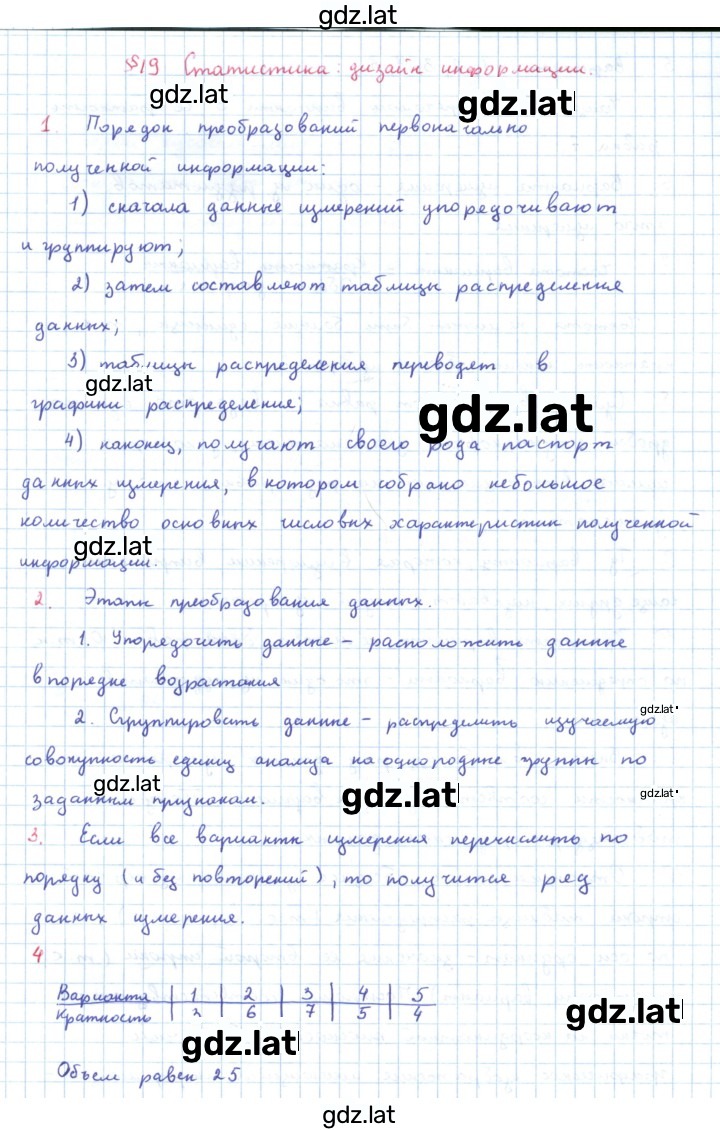 gdz.lat
§19 Статистика: дизайн информации.
gdz.lat
gdz.lat
1. Порядок преобразований первоначально
полученной информации:
1) сначала данные измерений упорядочивают
и группируют;
2) затем составляют таблицы распределения
данных;
3) таблицы распределения переводят в
gdz.lat
графики распределения;
gdz.lat
4) наконец, получают своего рода паспорт
данных измерения, в котором собрано небольшое
количество основных числовых характеристик полученной
gdz.lat
информации.
2. Этапы преобразования данных.
1. Упорядочить данные – расположить данные
в порядке возрастания
gdz.lat
2. Сгруппировать данные – распределить изучаемую
совокупность единиц анализа на однородные группы по
gdz.lat
gdz.lat
gdz.lat
заданным признакам.
3. Если все варианты измерения перечислить по
порядку (и без повторений), то получится ряд
данных измерения.
4
Варианта 1 2 3 4 5
Кратность 3 6 7 5 4
gdz.lat
gdz.lat
Объем равен 25
gdz.lat